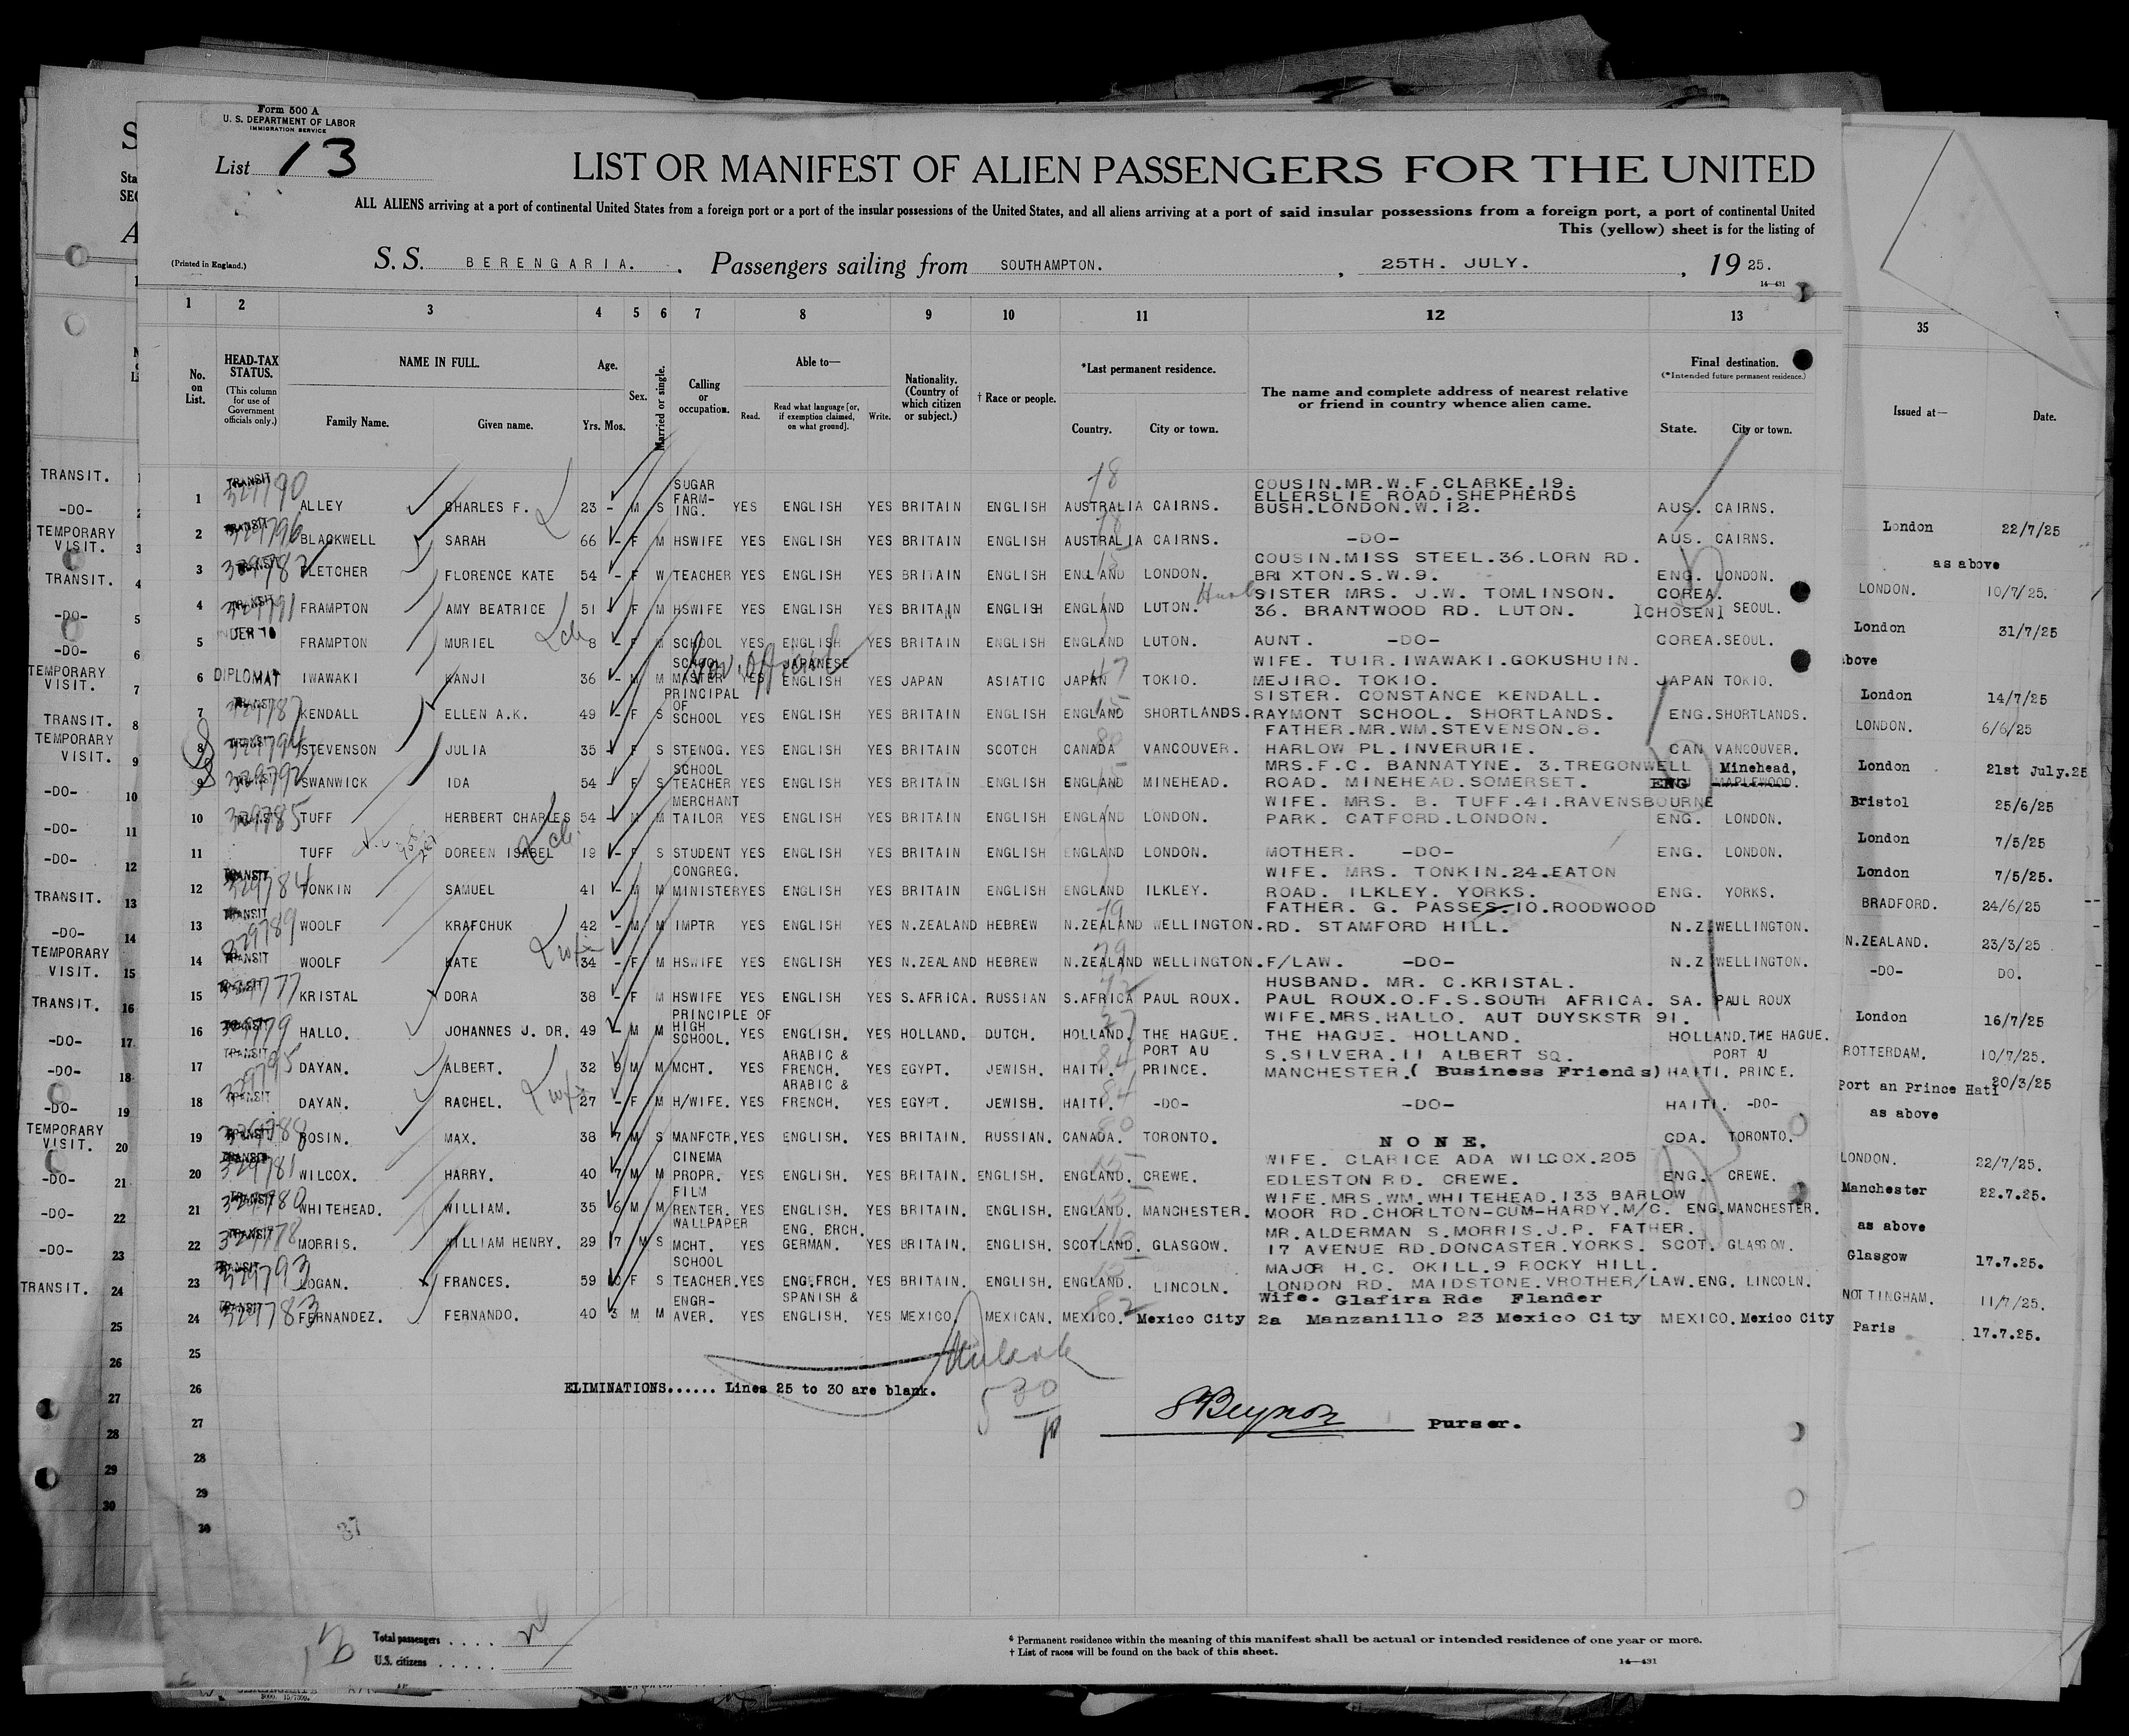 Form 500 A
U. S. DEPARTMENT OF LABOR
IMMIGRATION SERVICE
List 13
LIST OR MANIFEST OF ALIEN PASSENGERS FOR THE UNITED
ALL ALIENS arriving at a port of continental United States from a foreign port or a port of the insular possessions of the United States, and all aliens arriving at a port of said insular possessions from a foreign port, a port of continental United
This (yellow) sheet is for the listing of
(Printed in England.) S. S. BERENGARIA. Passengers sailing from SOUTHAMPTON. , 25TH. JULY. , 19 25.
14—431
1 2 3 4 5 6 7 8 9 10 11 12 13 35
No. on List. HEAD-TAX STATUS. (This column for use of Government officials only.) NAME IN FULL. Family Name. Given name. Age. Yrs. Mos. Sex. Married or single. Calling or occupation. Able to— Read. Read what language [or, if exemption claimed, on what ground]. Write. Nationality. (Country of which citizen or subject.) † Race or people. *Last permanent residence. Country. City or town. The name and complete address of nearest relative or friend in country whence alien came. Final destination. (*Intended future permanent residence.) State. City or town. Issued at— Date.
TRANSIT. 1 TRANSIT 329790 ALLEY CHARLES F. 23 - M S SUGAR FARM-ING. YES ENGLISH YES BRITAIN ENGLISH AUSTRALIA CAIRNS. COUSIN.MR.W.F.CLARKE.19. ELLERSLIE ROAD.SHEPHERDS BUSH.LONDON.W.12. AUS. CAIRNS. London 22/7/25
-DO- 2 TRANSIT 329796 BLACKWELL SARAH 66 - F M HSWIFE YES ENGLISH YES BRITAIN ENGLISH AUSTRALIA CAIRNS. -DO- AUS. CAIRNS. as above
TEMPORARY VISIT. 3 TRANSIT 329782 FLETCHER FLORENCE KATE 54 - F W TEACHER YES ENGLISH YES BRITAIN ENGLISH ENGLAND LONDON. COUSIN.MISS STEEL.36.LORN RD. BRIXTON.S.W.9. ENG. LONDON. LONDON. 10/7/25.
TRANSIT. 4 TRANSIT 329791 FRAMPTON AMY BEATRICE 51 - F M HSWIFE YES ENGLISH YES BRITAIN ENGLISH ENGLAND LUTON. SISTER MRS. J.W. TOMLINSON. 36. BRANTWOOD RD. LUTON. COREA. ICHOSENI SEOUL. London 31/7/25
-DO- 5 UNDER 16 FRAMPTON MURIEL 8 - F M SCHOOL YES ENGLISH YES BRITAIN ENGLISH ENGLAND LUTON. AUNT. -DO- COREA.SEOUL. above
-DO- 6 DIPLOMAT IWAWAKI KANJI 36 - M M SCHOOL MASTER YES JAPANESE ENGLISH YES JAPAN ASIATIC JAPAN TOKIO. WIFE. TUIR.IWAWAKI.GOKUSHUIN. MEJIRO. TOKIO. JAPAN TOKIO. London 14/7/25
TEMPORARY VISIT. 7 TRANSIT 329787 KENDALL ELLEN A.K. 49 - F S PRINCIPAL OF SCHOOL YES ENGLISH YES BRITAIN ENGLISH ENGLAND SHORTLANDS. SISTER. CONSTANCE KENDALL. RAYMONT SCHOOL. SHORTLANDS. ENG.SHORTLANDS. LONDON. 6/6/25
TRANSIT. 8 TRANSIT 329794 STEVENSON JULIA 35 - F S STENOG. YES ENGLISH YES BRITAIN SCOTCH CANADA VANCOUVER. FATHER.MR.WM.STEVENSON.8. HARLOW PL.INVERURIE. CAN VANCOUVER. London 21st July.25
TEMPORARY VISIT. 9 TRANSIT 329792 SWANWICK IDA 54 - F S SCHOOL TEACHER YES ENGLISH YES BRITAIN ENGLISH ENGLAND MINEHEAD. MRS.F.C. BANNATYNE. 3.TREGONWELL ROAD. MINEHEAD.SOMERSET. ENG Minehead, MAPLEWOOD. Bristol 25/6/25
-DO- 10 TRANSIT 329785 TUFF HERBERT CHARLES 54 - M M MERCHANT TAILOR YES ENGLISH YES BRITAIN ENGLISH ENGLAND LONDON. WIFE. MRS. B. TUFF.41.RAVENSBOURNE PARK. CATFORD.LONDON. ENG. LONDON. London 7/5/25
-DO- 11 TUFF DOREEN ISABEL 19 - F S STUDENT YES ENGLISH YES BRITAIN ENGLISH ENGLAND LONDON. MOTHER. -DO- ENG. LONDON. London 7/5/25.
-DO- 12 TRANSIT 329784 TONKIN SAMUEL 41 - M M CONGREG. MINISTER YES ENGLISH YES BRITAIN ENGLISH ENGLAND ILKLEY. WIFE. MRS. TONKIN.24.EATON ROAD. ILKLEY. YORKS. ENG. YORKS. BRADFORD. 24/6/25
TRANSIT. 13 TRANSIT 329789 WOOLF KRAFCHUK 42 - M M IMPTR YES ENGLISH YES N.ZEALAND HEBREW N.ZEALAND WELLINGTON. FATHER. G. PASSES.10.ROODWOOD RD. STAMFORD HILL. N.Z WELLINGTON. N.ZEALAND. 23/3/25
-DO- 14 TRANSIT WOOLF KATE 34 - F M HSWIFE YES ENGLISH YES N.ZEALAND HEBREW N.ZEALAND WELLINGTON. F/LAW. -DO- N.Z WELLINGTON. -DO- DO.
TEMPORARY VISIT. 15 TRANSIT 329777 KRISTAL DORA 38 - F M HSWIFE YES ENGLISH YES S.AFRICA. RUSSIAN S.AFRICA PAUL ROUX. HUSBAND. MR. C.KRISTAL. PAUL ROUX.O.F.S.SOUTH AFRICA. SA. PAUL ROUX London 16/7/25
TRANSIT. 16 TRANSIT 329779 HALLO. JOHANNES J. DR. 49 - M M PRINCIPLE OF HIGH SCHOOL. YES ENGLISH. YES HOLLAND. DUTCH. HOLLAND. THE HAGUE. WIFE.MRS.HALLO. AUT DUYSKSTR 91. THE HAGUE. HOLLAND. HOLLAND.THE HAGUE. ROTTERDAM. 10/7/25.
-DO- 17 TRANSIT 329795 DAYAN. ALBERT. 32 9 M M MCHT. YES ARABIC & FRENCH. YES EGYPT. JEWISH. HAITI. PORT AU PRINCE. S.SILVERA.11 ALBERT SQ. MANCHESTER.( Business Friends) HAITI. PORT AU PRINCE. Port an Prince Hati 20/3/25
-DO- 18 TRANSIT DAYAN. RACHEL. 27 - F M H/WIFE. YES ARABIC & FRENCH. YES EGYPT. JEWISH. HAITI. -DO- -DO- HAITI. -DO- as above
-DO- 19 TRANSIT 329788 ROSIN. MAX. 38 7 M S MANFCTR. YES ENGLISH. YES BRITAIN. RUSSIAN. CANADA. TORONTO. NONE. CDA. TORONTO. LONDON. 22/7/25.
TEMPORARY VISIT. 20 TRANSIT 329781 WILCOX. HARRY. 40 7 M M CINEMA PROPR. YES ENGLISH. YES BRITAIN. ENGLISH. ENGLAND. CREWE. WIFE. CLARICE ADA WILCOX.205 EDLESTON RD. CREWE. ENG. CREWE. Manchester 22.7.25.
-DO- 21 TRANSIT 329780 WHITEHEAD. WILLIAM. 35 6 M M FILM RENTER. YES ENGLISH. YES BRITAIN. ENGLISH. ENGLAND. MANCHESTER. WIFE.MRS.WM.WHITEHEAD.133 BARLOW MOOR RD.CHORLTON-CUM-HARDY.M/C. ENG.MANCHESTER. as above
-DO- 22 TRANSIT 329778 MORRIS. WILLIAM HENRY. 29 7 M S WALLPAPER MCHT. YES ENG. ERCH. GERMAN. YES BRITAIN. ENGLISH. SCOTLAND. GLASGOW. MR.ALDERMAN S.MORRIS.J.P. FATHER. 17 AVENUE RD.DONCASTER.YORKS. SCOT. GLASGOW. Glasgow 17.7.25.
-DO- 23 TRANSIT 329793 LOGAN. FRANCES. 59 10 F S SCHOOL TEACHER. YES ENG.FRCH. YES BRITAIN. ENGLISH. ENGLAND. LINCOLN. MAJOR H.C. OKILL.9 ROCKY HILL. LONDON RD. MAIDSTONE.VROTHER/LAW. ENG. LINCOLN. NOTTINGHAM. 11/7/25.
TRANSIT. 24 TRANSIT 329783 FERNANDEZ. FERNANDO. 40 3 M M ENGR-AVER. YES SPANISH & ENGLISH. YES MEXICO. MEXICAN. MEXICO. Mexico City Wife. Glafira Rde Flander 2a Manzanillo 23 Mexico City MEXICO. Mexico City Paris 17.7.25.
25
26 ELIMINATIONS...... Lines 25 to 30 are blank.
27 Purser.
28
29
30
37
Total passengers . . . .
U.S. citizens . . . . .
* Permanent residence within the meaning of this manifest shall be actual or intended residence of one year or more.
† List of races will be found on the back of this sheet.
14—431